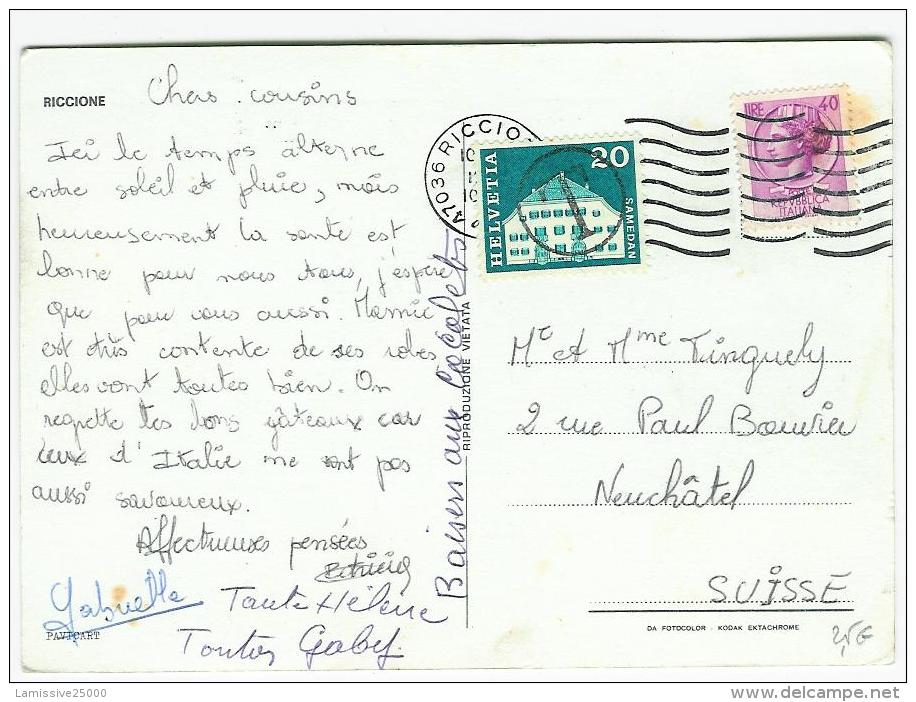 RICCIONE
Chers cousins
Ici le temps alterne
entre soleil et pluie, mais
heureusement la santé est
bonne pour nous tous, j'espère
que pour vous aussi. Mamie
est très contente de ses robes
elles vont toutes bien. On
regrette tes bons gâteaux car
ceux d'Italie ne sont pas
aussi savoureux.
Affectueuses pensées
Gabrielle
Tante Hélène
Tonton Gaby
PAVICART
Baisers aux
RIPRODUZIONE VIETATA
47036 RICCIO
HELVETIA
20
SAMEDAN
LIRE 40
POSTE
REPVBBLICA
ITALIANA
Mr et Mme Tinguely
2 rue Paul Bouvier
Neuchâtel
SUISSE
DA FOTOCOLOR - KODAK EKTACHROME
2,5€
Lamissive25000
www.delcampe.net